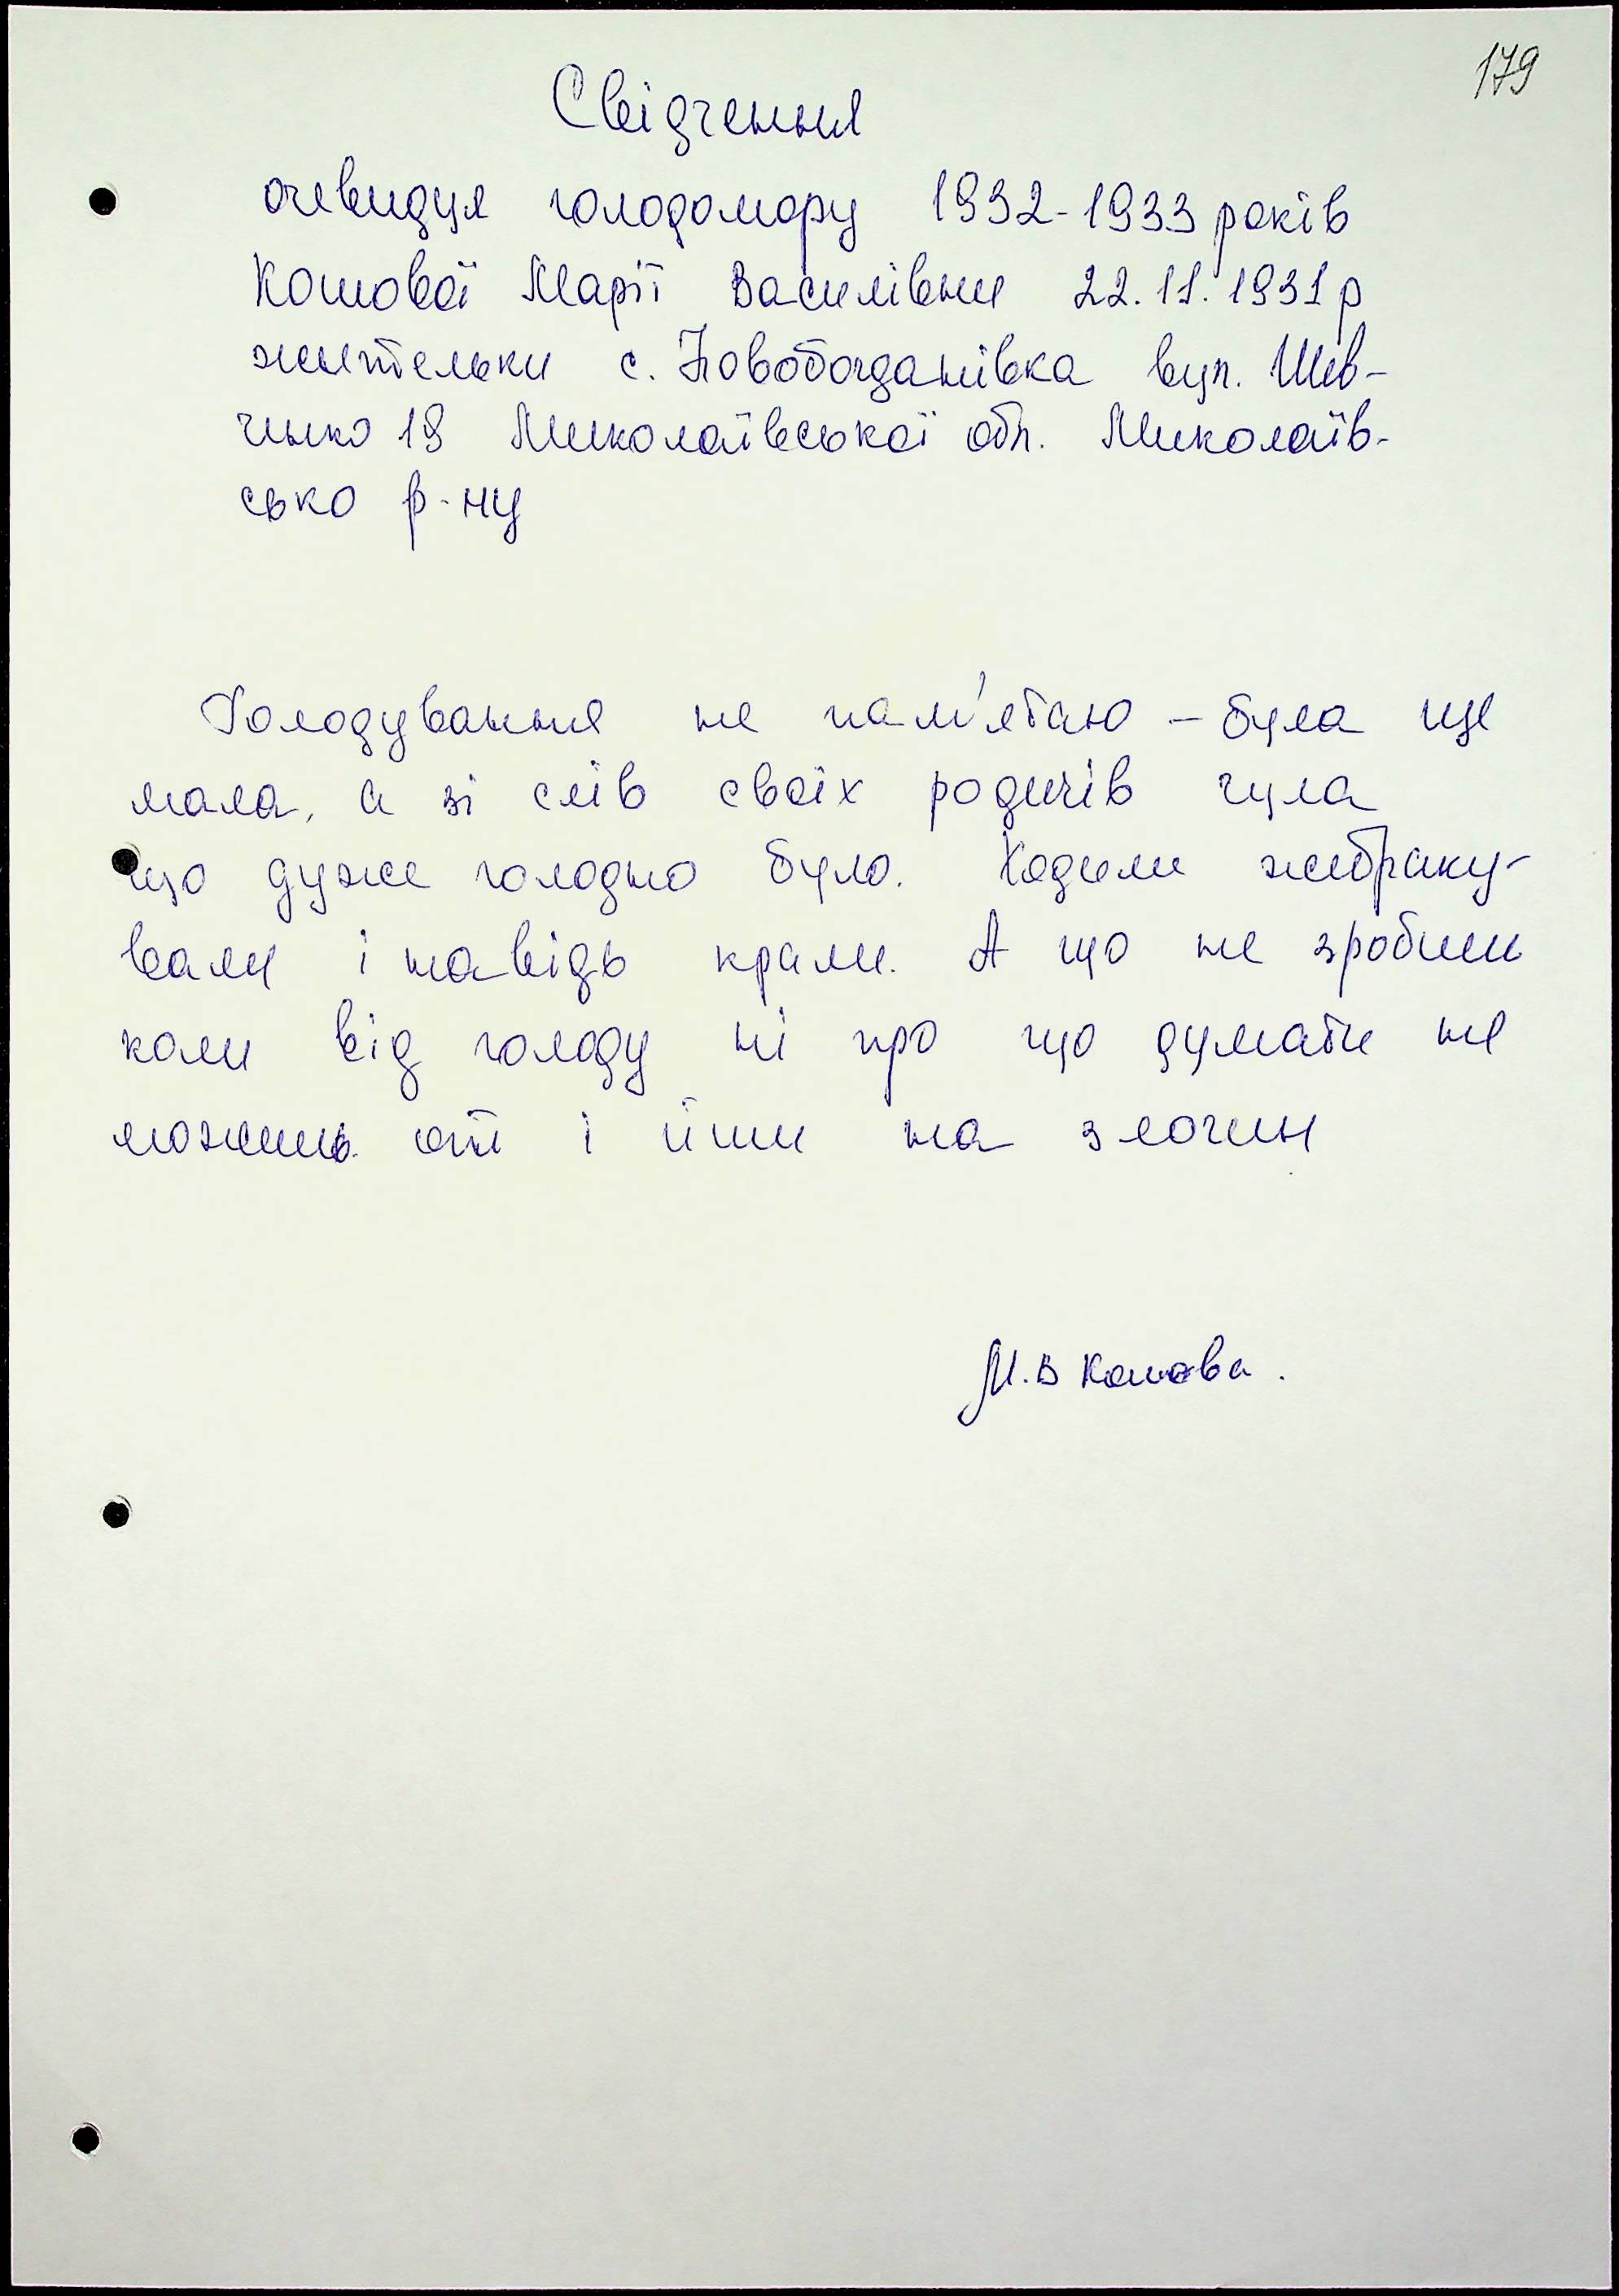 179
Свідчення
очевидця голодомору 1932-1933 років
Кошової Марії Василівни 22.11.1931 р
жительки с. Новобогданівка вул. Шев-
ченко 19 Миколаївської обл. Миколаїв-
сько р-ну
Голодування не пам'ятаю – була ще
мала, а зі слів своїх родичів чула
що дуже голодно було. Ходили жебраку-
вали і навідь крали. А що не зробиш
коли від голоду ні про що думати не
можишь. от і йшли на злочин
М.В Кошова.